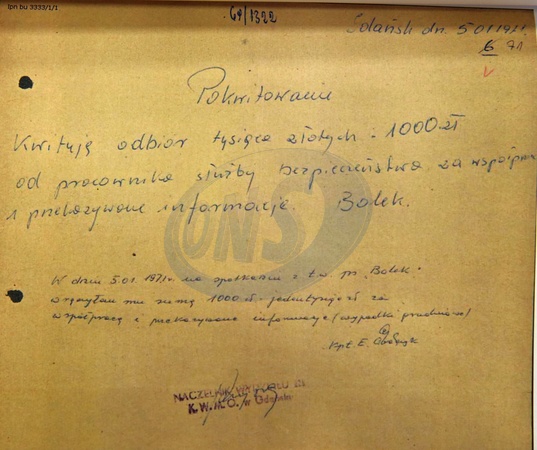 ipn bu 3333/1/1
69/1322
Gdańsk dn. 5 01 1971.
6 71
Pokwitowanie
Kwituję odbiór tysiąca złotych - 1000 zł
od pracownika służby bezpieczeństwa za współpr
i przekazywane informacje. Bolek.
ONS
W dniu 5.01.1971r na spotkaniu z t.w. ps. Bolek
wręczyłem mu sumę 1000 zł - jeden tysiąc zł za
współpracę i przekazywane informacje (wypadki grudniowe)
Kpt. E.
NACZELNIK WYDZIAŁU III
K.W.M.O. w Gdańsku